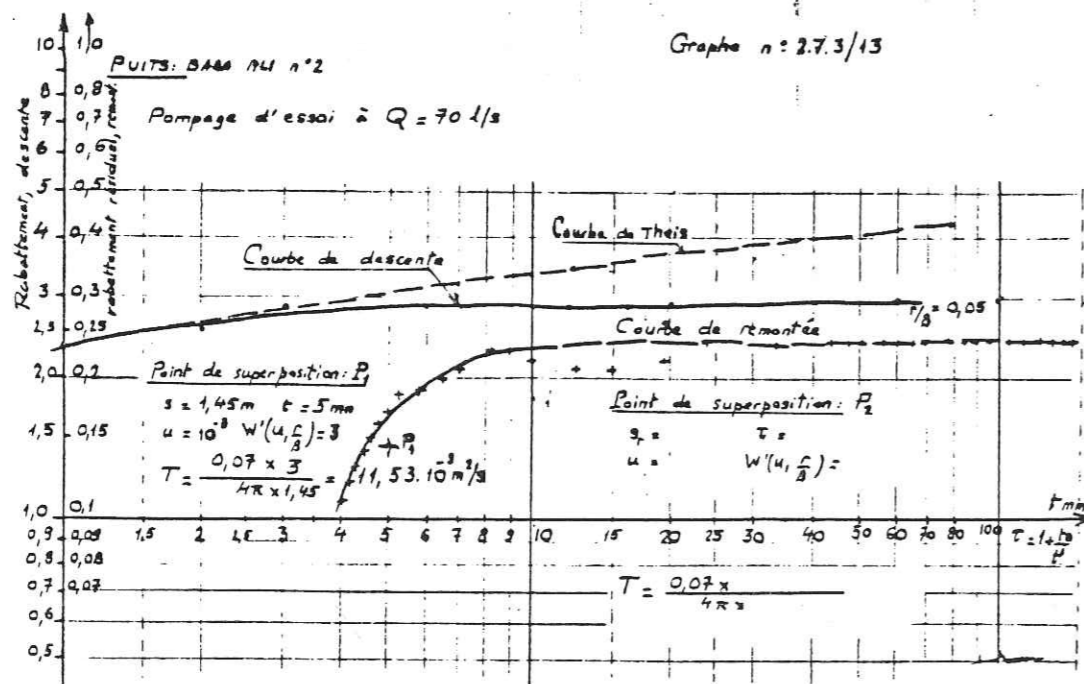 Graphe n° 2.7.3/13
PUITS: BABA ALI n°2
Pompage d'essai à Q = 70 l/s
Rabattement, descente
rabattement résiduel, remont.
10 1,0
8 0,8
7 0,7
6 0,6
5 0,5
4 0,4
3 0,3
2,5 0,25
2,0 0,2
1,5 0,15
1,0 0,1
0,9 0,09
0,8 0,08
0,7 0,07
0,6
0,5
Courbe de Theis
Courbe de descente
r/B = 0,05
Courbe de remontée
Point de superposition: P1
s = 1,45m t = 5 mn
W'(u, r/B) = 3
P1
T = 0,07 x 3 / 4π x 1,45 = 11,53.10⁻³ m²/s
Point de superposition: P2
sr = τ =
u = W'(u, r/B) =
t min
1,5 2 2,5 3 4 5 6 7 8 9 10 15 20 25 30 40 50 60 70 80 100
T = 0,07 x / 4π x